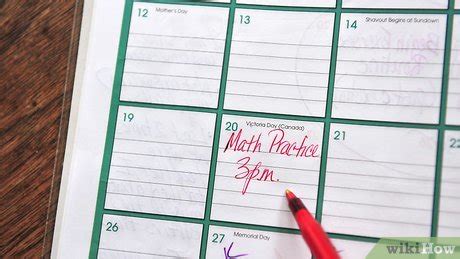 12 Mother's Day
13
14 Shavuot Begins at Sundown
19
20 Victoria Day (Canada)
21
Math Practice
3pm.
26
27 Memorial Day
wikiHow